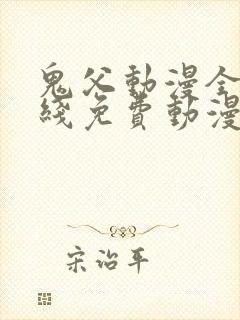 鬼父動漫全
綫免費動漫
宋治平